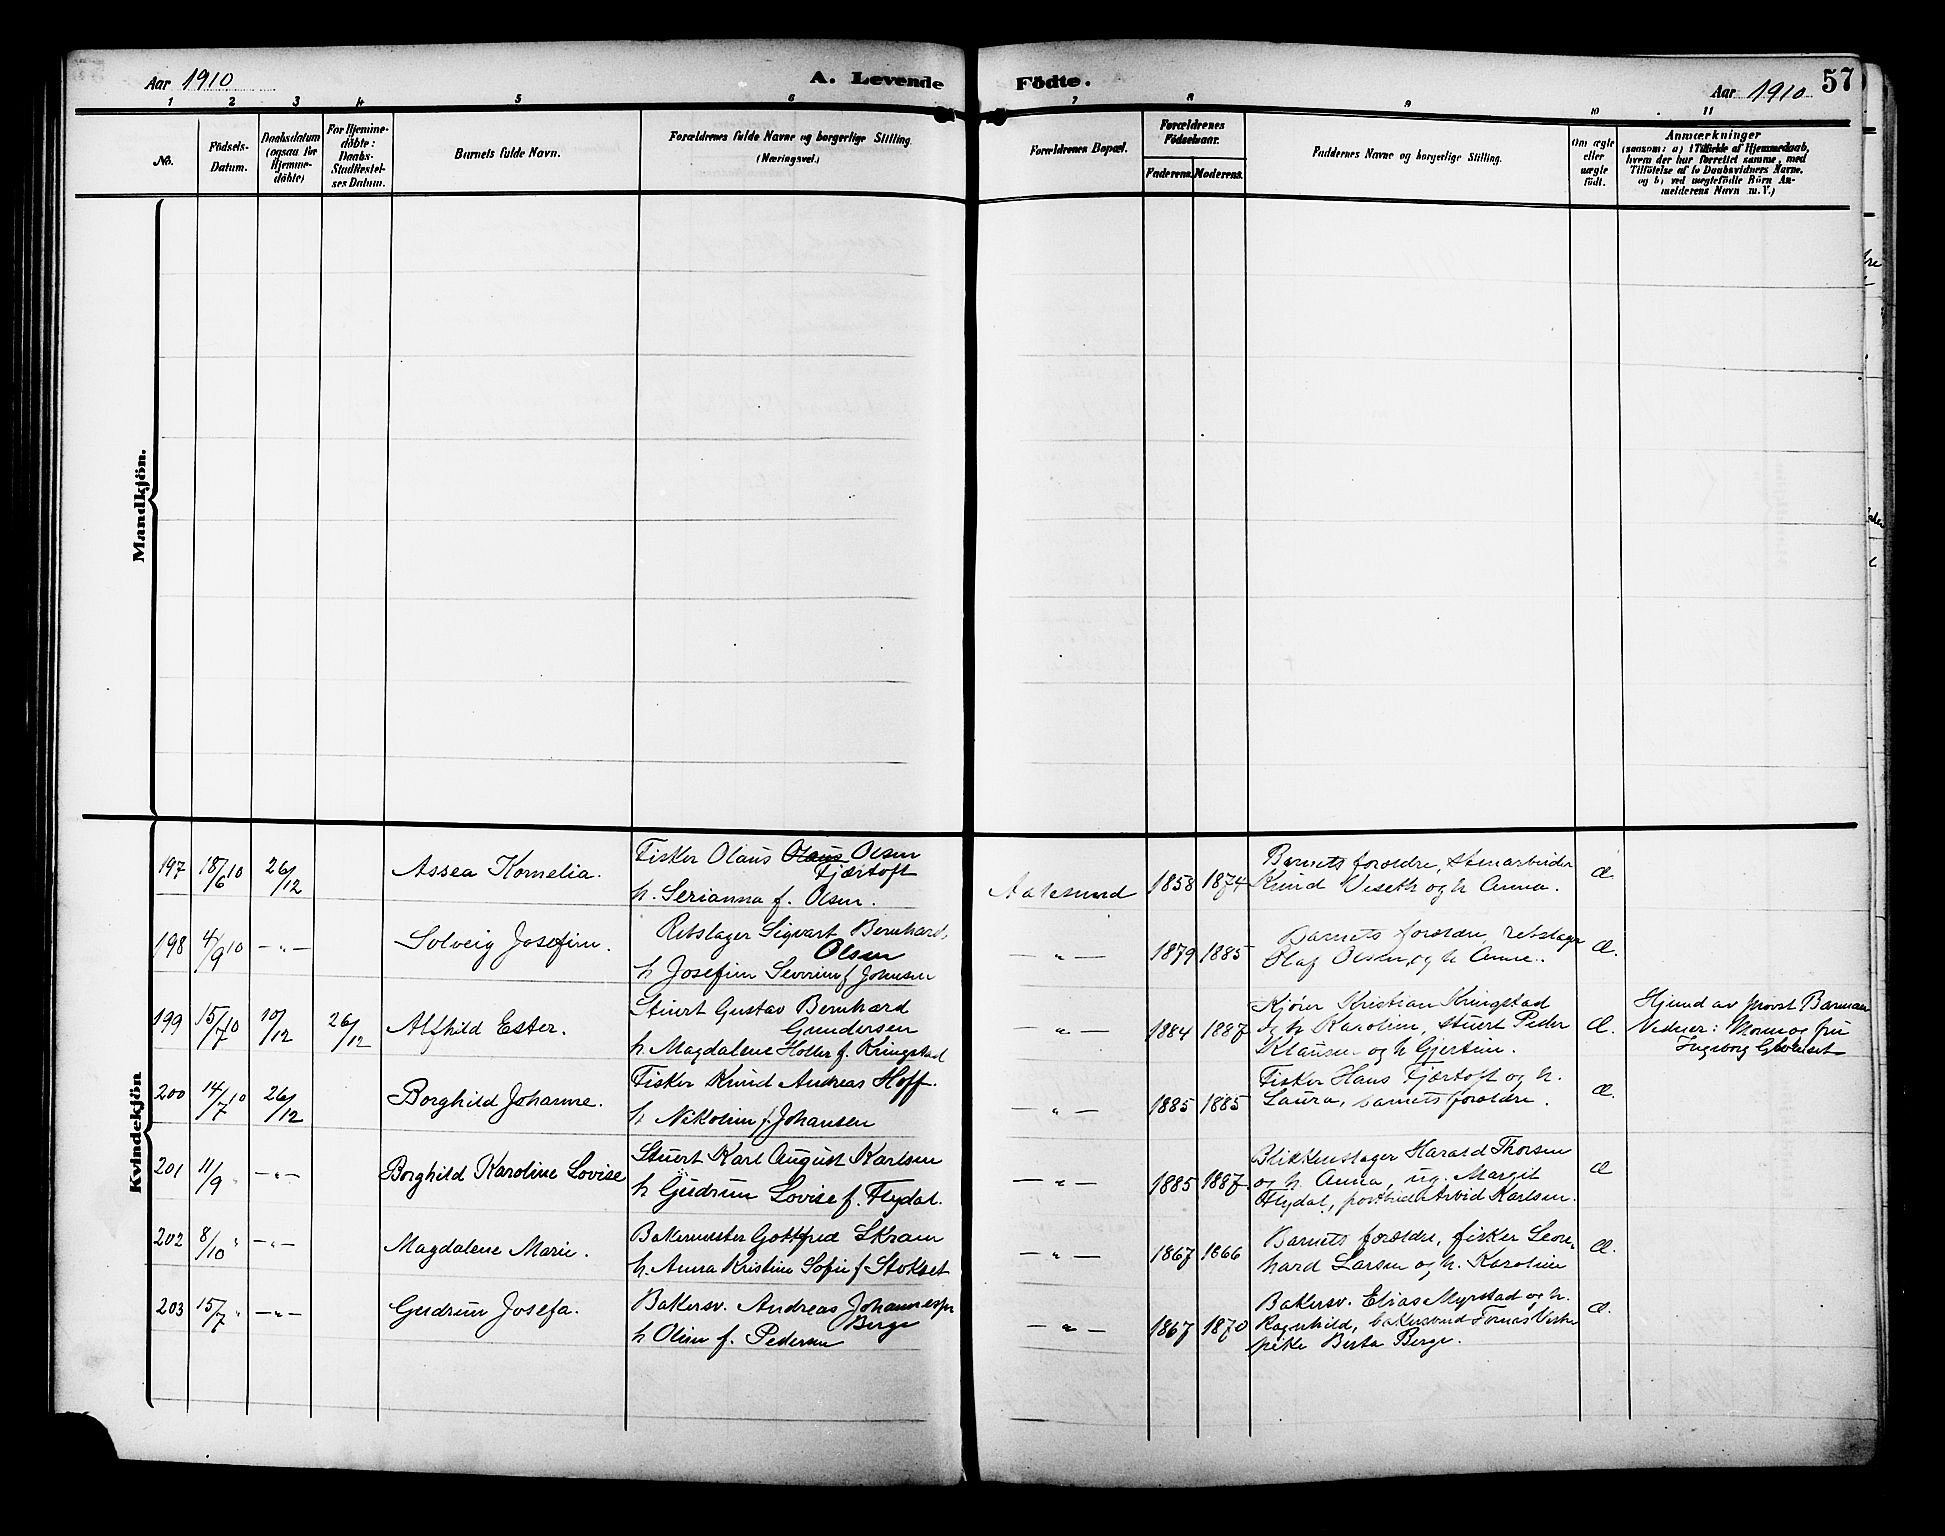 Aar 1910
A. Levende
Födte.
Aar 1910
57
1 2 3 4 5 6
7 8 9 10 11
No.
Födsels-
Datum.
Daabsdatum
(ogsaa for
Hjemme-
döbte)
For Hjemme-
döbte:
Daabs-
Stadfæstel-
ses Datum.
Barnets fulde Navn.
Forældrenes fulde Navne og borgerlige Stilling.
(Næringsvei.)
Forældrenes Bopæl.
Forældrenes
Födselsaar.
Faderens. Moderens.
Faddernes Navne og borgerlige Stilling.
Om ægte
eller
uægte
födt.
Anmærkninger
(saasom: a) i Tilfælde af Hjemmedaab,
hvem der har forrettet samme, med
Tilföielse af to Daabsvidners Navne,
og b) ved uægtefödte Börn An-
melderens Navn m. V.)
Mandkjön.
Kvindekjön
197 18/6 10 26/12
Assea Kornelia.
Fisker Olaus Olaus Olsen
Fjærtoft
h. Serianna f. Olsen.
Aalesund
1858 1874
Barnets forældre, stenarbeider
Knud Viseth og h Anna.
Æ
198 4/9 10 — " —
Solveig Josefine.
Rebslager Sigvart Bernhard,
Olsen
h Josefine Severine f Johnsen
— " —
1879 1885
Barnets forældre, rebslager
Olaf Olsen og h Anne.
Æ.
199 15/7 10 10/12 26/12
Alfhild Ester.
Stuert Gustav Bernhard
Gundersen
h. Magdalene Holter f. Kringstad
— " —
1884 1887
Kjører Kristian Kringstad
og h Karoline, stuert Peder
Klausen og h Gjertine.
Æ.
Hjemd av Provst Barman
Vidner: Moren og fru
Ingeborg
200 14/7 10 26/12
Borghild Johanne.
Fisker Knud Andreas Hoff.
h Nikoline f. Johansen
— " —
1885 1885
Fisker Hans Fjærtoft og h.
Laura, barnets forældre.
Æ.
201 11/9 " — " —
Borghild Karoline Lovise
Stuert Karl August Karlsen
h Gudrun Lovise f. Flydal.
— " —
1885 1887.
Blikkenslager Harald Thorsen
og h. Anna, ug. Margit
Flydal, postbud Arvid Karlsen.
Æ
202 8/10 " — " —
Magdalene Marie.
Bakermester Gottfred Skram
h. Anna Kristine Sofie f Stokset
— " —
1867 1866
Barnets forældre, fisker Leon-
hard Larsen og h. Karoline
Æ.
203 15/7 " — " —
Gudrun Josefa.
Bakersv. Andreas Johannesen
Berge
h Oline f. Pedersen
— " —
1867 1870
Bakersv. Elias Myrstad og h.
Ragnhild, Tomas
pike Berta Berge.
Æ.